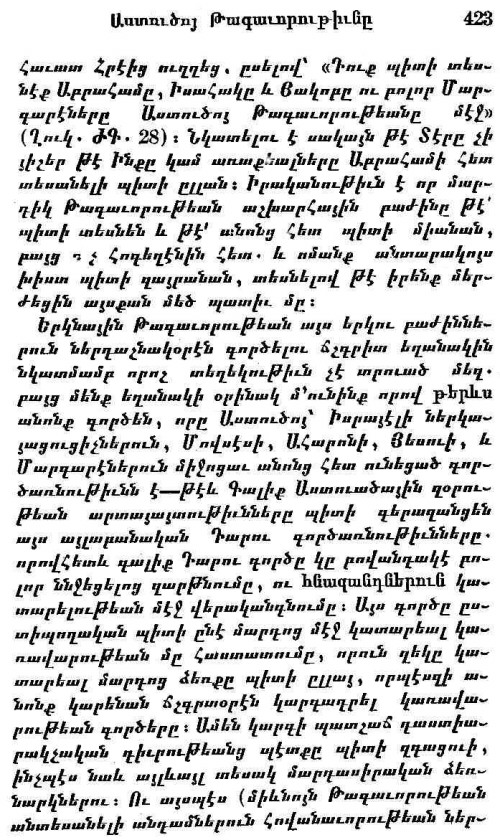 Աստուծոյ Թագաւորութիւնը 423
Հաւատ Հրէից ուղղեց. ըսելով՝ «Դուք պիտի տես-
նէք Աբրահամը, Իսահակը և Յակոբը ու բոլոր Մար-
գարէները Աստուծոյ Թագաւորութեանը մէջ»
(Ղուկ. ԺԳ. 28)։ Նկատելու է սակայն թէ Տէրը չի
յիշեր թէ Ինքը կամ առաքեալները Աբրահամի հետ
տեսանելի պիտի ըլլան։ Իրականութիւն է որ մար-
դիկ Թագաւորութեան աշխարհային բաժինը թէ՛
պիտի տեսնեն և թէ՛ անոնց հետ պիտի միանան,
բայց ո՛չ Հոգեղէնին հետ. և ոմանք անտարակոյս
խիստ պիտի զայրանան, տեսնելով թէ իրենք մեր-
ժեցին այսքան մեծ պատիւ մը։
Երկնային Թագաւորութեան այս երկու բաժիննե-
րուն ներդաշնակօրէն գործելու ճշգրիտ եղանակին
նկատմամբ որոշ տեղեկութիւն չէ տրուած մեզ.
բայց մենք եղանակի օրինակ մ՚ունինք որով թերևս
անոնք գործեն, որը Աստուծոյ՝ Իսրայէլի ներկա-
յացուցիչներուն, Մովսէսի, Ահարոնի, Յեսուի, և
Մարգարէներուն միջոցաւ անոնց հետ ունեցած գոր-
ծառնութիւնն է—թէև Գալիք Աստուածային զօրու-
թեան արտայայտութիւնները պիտի գերազանցեն
այս այլաբանական Դարու գործառնութիւնները.
որովհետև գալիք Դարու գործը կը բովանդակէ բո-
լոր ննջեցելոց զարթնումը, ու հնազանդներուն կա-
տարելութեան մէջ վերականգնումը։ Այս գործը ըս-
տիպողական պիտի ընէ մարդոց մէջ կատարեալ կա-
ռավարութեան մը հաստատումը, որուն ղեկը կա-
տարեալ մարդոց ձեռքը պիտի ըլլայ, որպէսզի ա-
նոնք կարենան ճշգրտօրէն կարգադրել կառավա-
րութեան գործերը։ Ամեն կարգի պատշաճ դաստիա-
րակչական դիւրութեանց պէտքը պիտի զգացուի,
ինչպէս նաև այլևայլ տեսակ մարդասիրական ձեռ-
նարկներու։ Ու այսպէս (միևնոյն Թագաւորութեան
անտեսանելի անդամներուն հովանաւորութեան ներ-